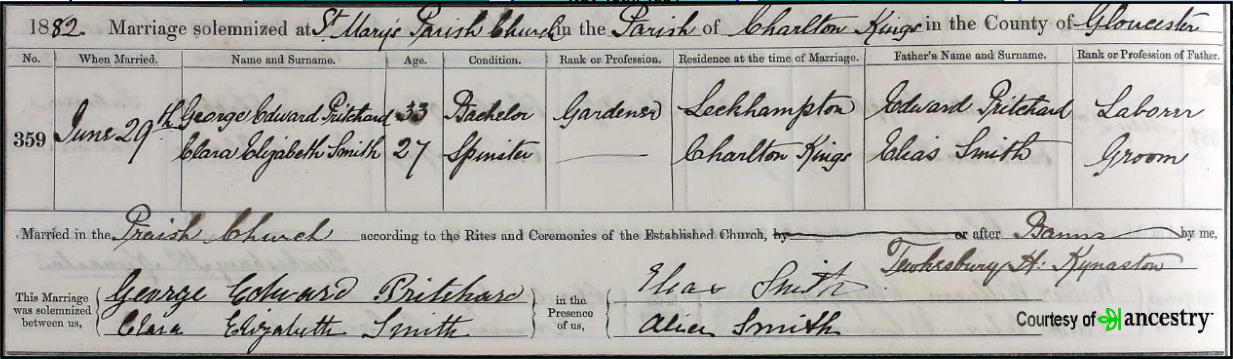 1882. Marriage solemnized at St Mary's Parish Church in the Parish of Charlton Kings in the County of Gloucester
No. When Married. Name and Surname. Age. Condition. Rank or Profession. Residence at the time of Marriage. Father's Name and Surname. Rank or Profession of Father.
359 June 29th George Edward Pritchard 33 Bachelor Gardener Leckhampton Edward Pritchard Laborer
Clara Elizabeth Smith 27 Spinster Charlton Kings Elias Smith Groom
Married in the Praish Church according to the Rites and Ceremonies of the Established Church, by or after Banns by me,
Tewkesbury H. Kynaston
This Marriage was solemnized between us, George Edward Pritchard in the Presence of us, Elias Smith
Clara Elizabeth Smith Alice Smith
Courtesy of ancestry